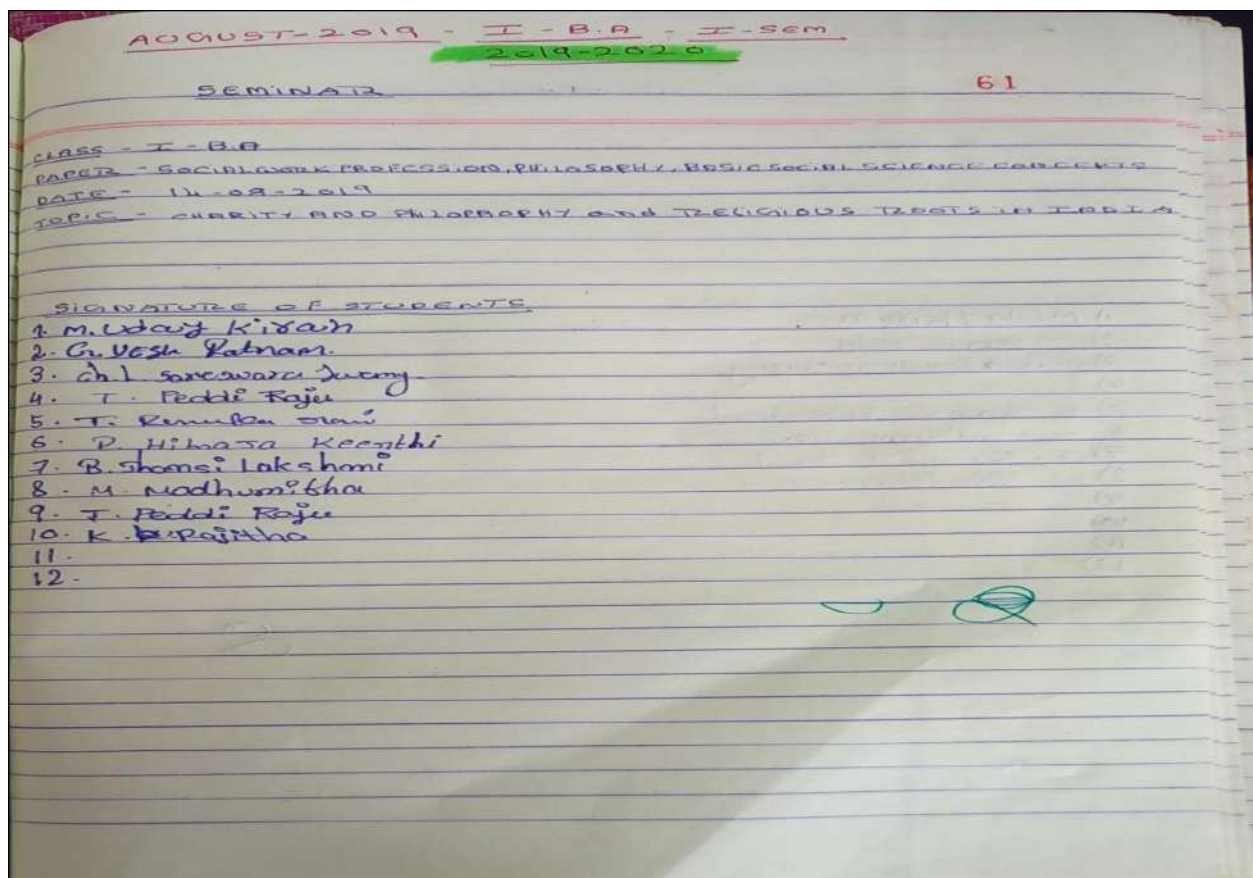 AUGUST-2019 - I - B.A - I-SEM
2019-2020
SEMINAR
61
CLASS - I - B.A
PAPER - SOCIALWORK PROFESSION, PHILOSOPHY, BASIC SOCIAL SCIENCE CONCEPTS
DATE - 14-08-2019
TOPIC - CHARITY AND PHILOPROPHY and RELIGIOUS ROOTS in INDIA
SIGNATURE OF STUDENTS
1. M. Uday Kiran
2. G. VESH Ratnam.
3. ch. l.
4. T. Peddi Raju
5. T. Renuka
6. P. Himaja Keerthi
7. B. Lakshmi
8. M. Madhumitha
9. T. Peddi Raju
10. K. Rajitha
11.
12.